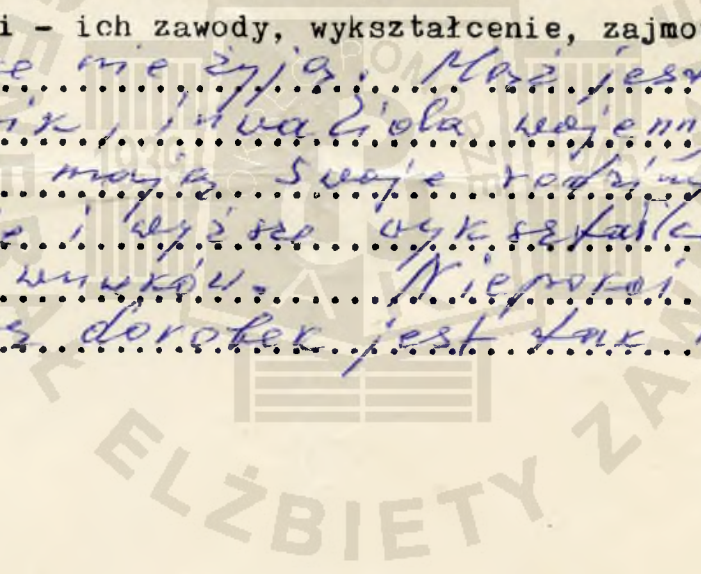 i – ich zawody, wykształcenie, zajmo
e nie żyją. Mąż jest
ik, inwalida wojenn
mają swoje rodziny
e i wyższe wykształc
wnuków. Niepokoi
dorobek jest tak
ELŻBIETY ZAW